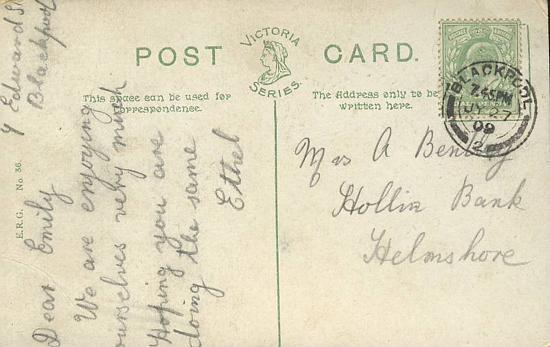 POST CARD.
VICTORIA
SERIES.
This space can be used for
correspondence.
The Address only to be
written here.
E.R.G. No 36.
7 Edward St
Blackpool
Dear Emily
We are enjoying
ourselves very much
Hoping you are
doing the same
Ethel
BLACKPOOL
7.45PM
27
09
2
Mrs A
Hollin Bank
Helmshore